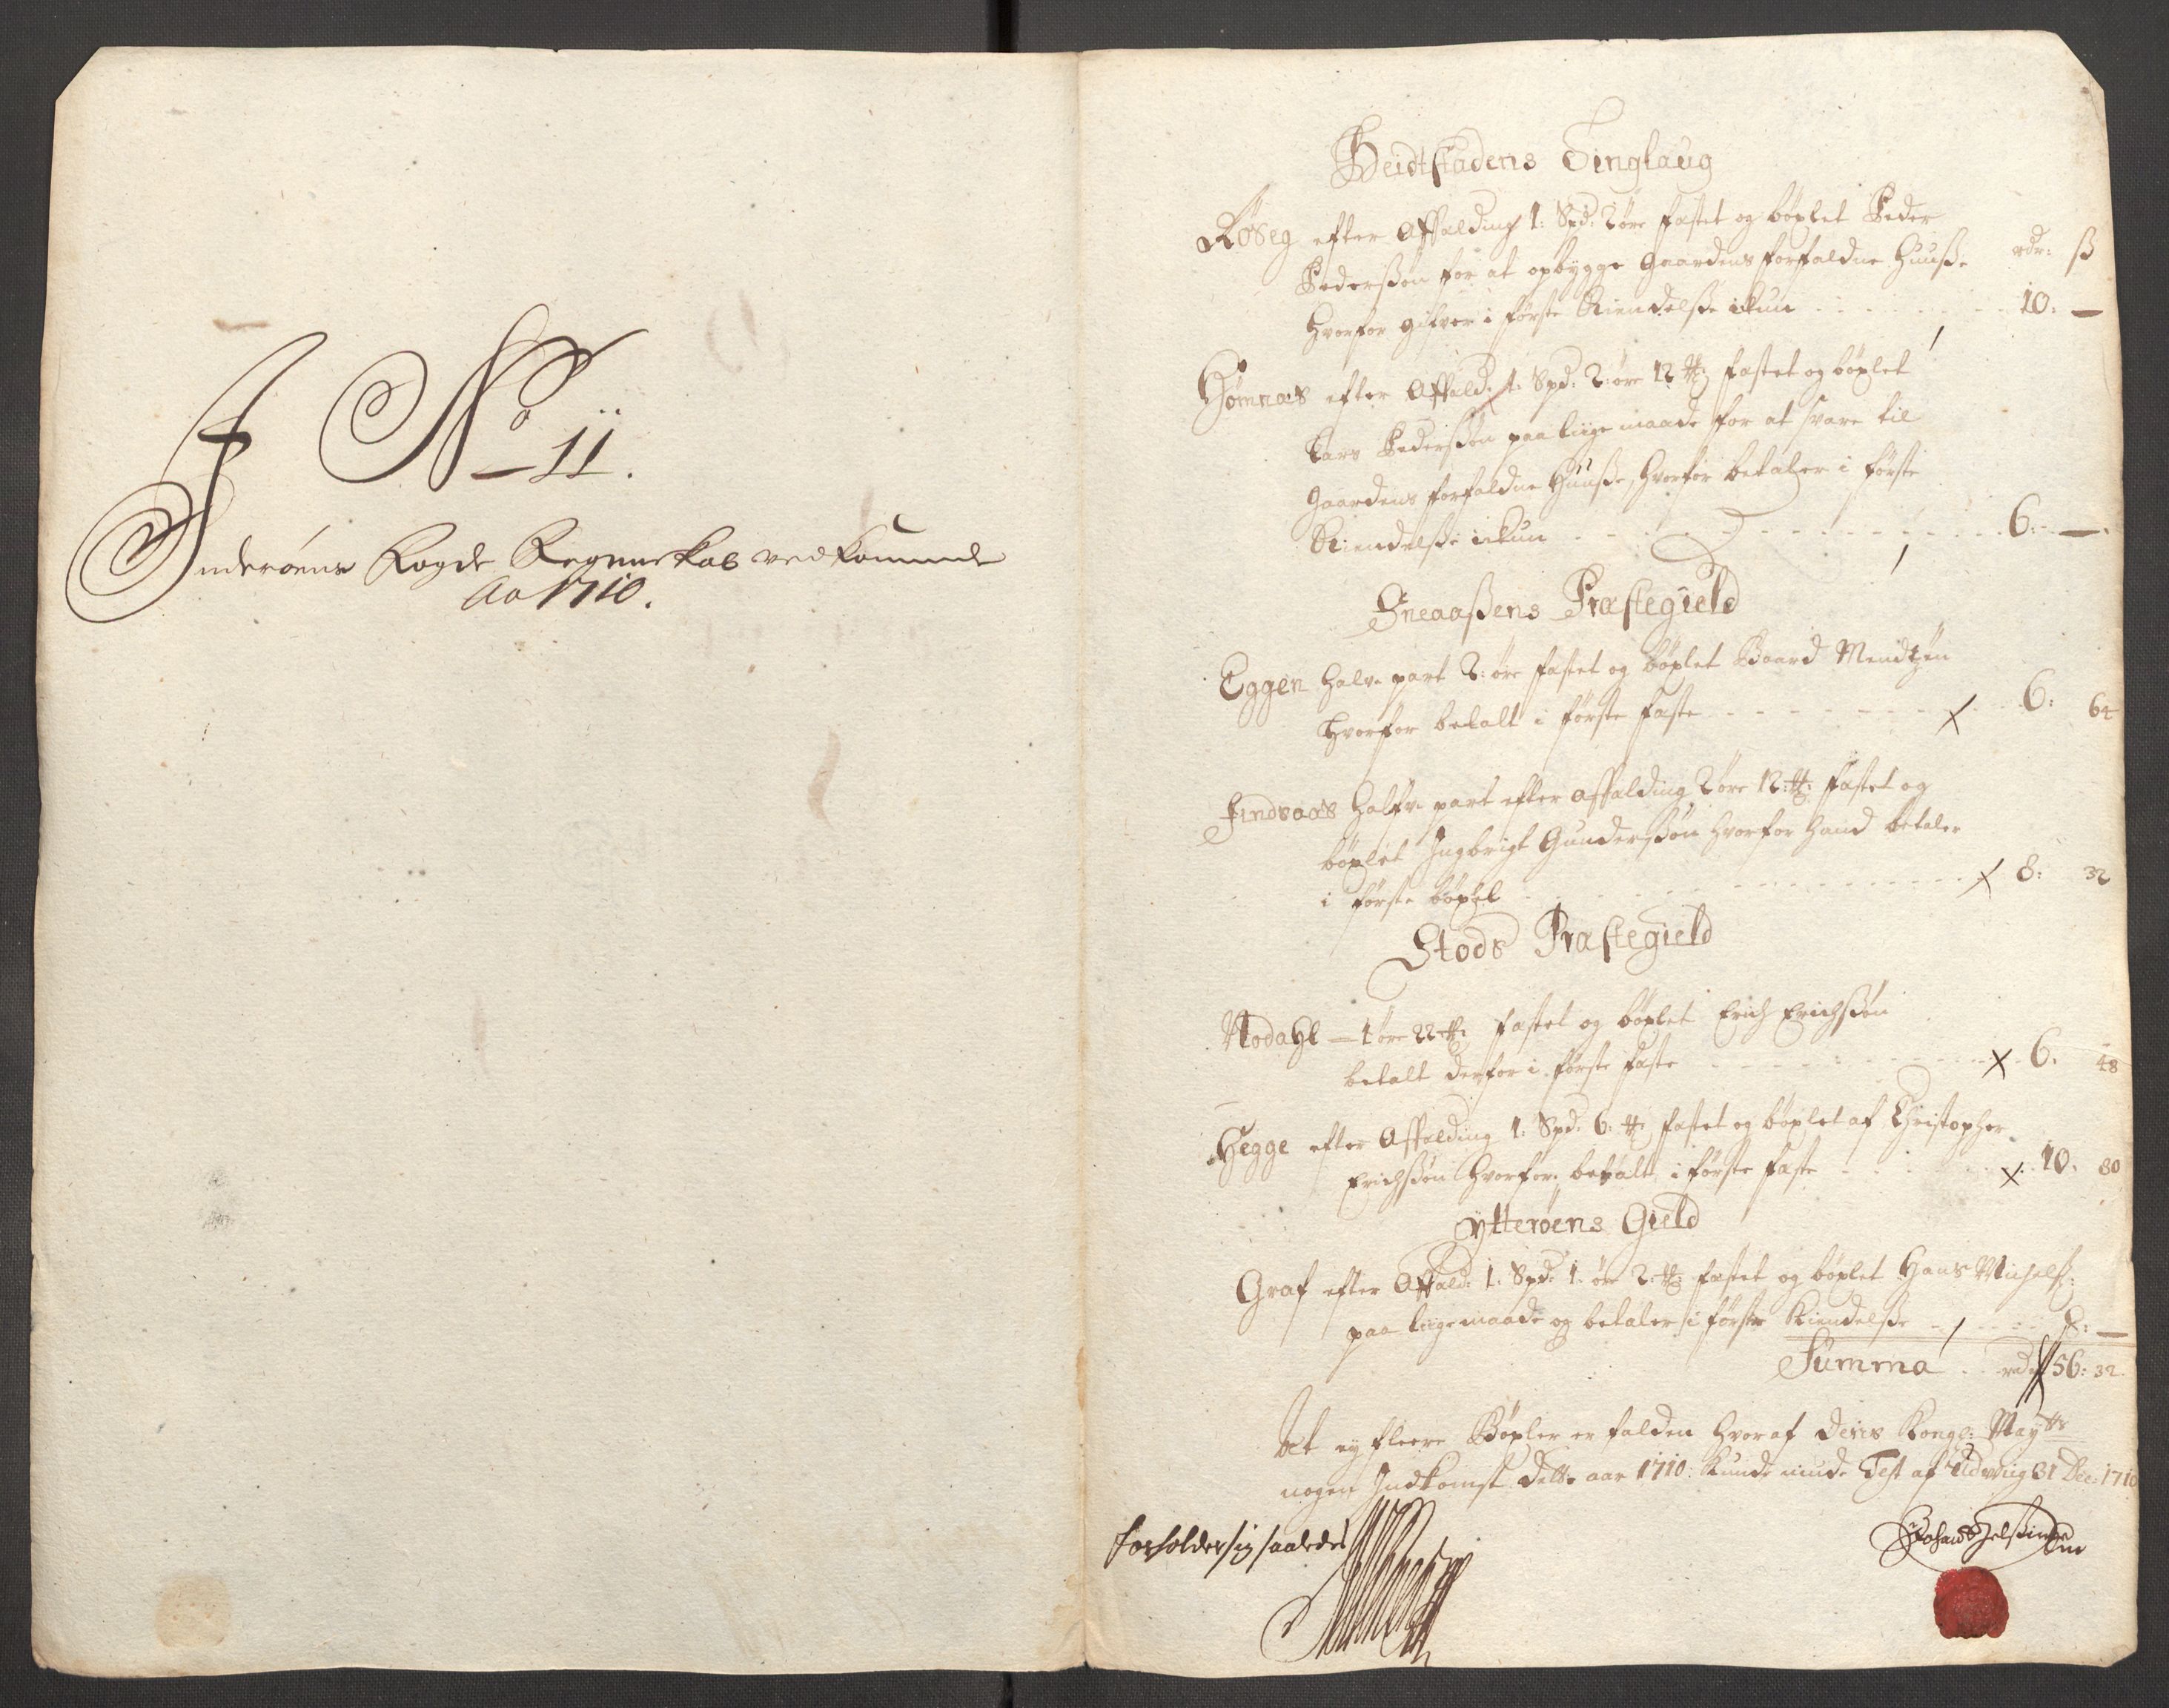 No 11.
Inderøens Fogde Regnnskab vedkommende
Ao 1710.
Beidtstadens Tinglaug
Røseg efter Affælding 1: Spd: 2 øre fæstet og böxlet Peder
Pederssøn for at opbygge Gaardens forfaldne Huusse rdr: ß
hvorfor gifver i første Kiendelsse ickun 10: —
Hømnæs efter Affæld: 1: Spd: 2: øre 12 ℔: fæstet og böxlet
Lars Pederssøn paa liige maade for at svare til
Gaardens forfaldne Huusse, hvorfor betaler i første
Kiendelsse ickun 6: —
Sneaaßens Præstegield
Eggen halve part 2: øre fæstet og böxlet Baard
hvorfor betalt i første fæste 6: 64
Findsaas halfve part efter affælding 2 øre 12: ℔: fæstet og
böxlet Ingbrigt Gunderssøn hvorfor hand betaler
i første böxel 8: 32
Stods Præstegield
Nodahl — 1 øre 22 ℔: fæstet og böxlet Erich Erichssøn
betalt derfor i første fæste 6: 48
Hegge efter Affælding 1: Spd: 6: ℔ fæstet og böxlet af Christopher
Erichssøn hvorfor betalt i første fæste 10. 80
Ytterøens Gield
Graf efter Affæld: 1: Spd: 1: øre 2: ℔: fæstet og böxlet Hans Michelß:
paa liigemaade og betaler i første Kiendelsse 8: —
Summa rdr 56: 32
At ey fleere Böxler er falden hvoraf Deris Kongl: Maytts
nogen Indkomst dette aar 1710: kunde niude Test af 31 Dec: 1710
forholder sig saaledes